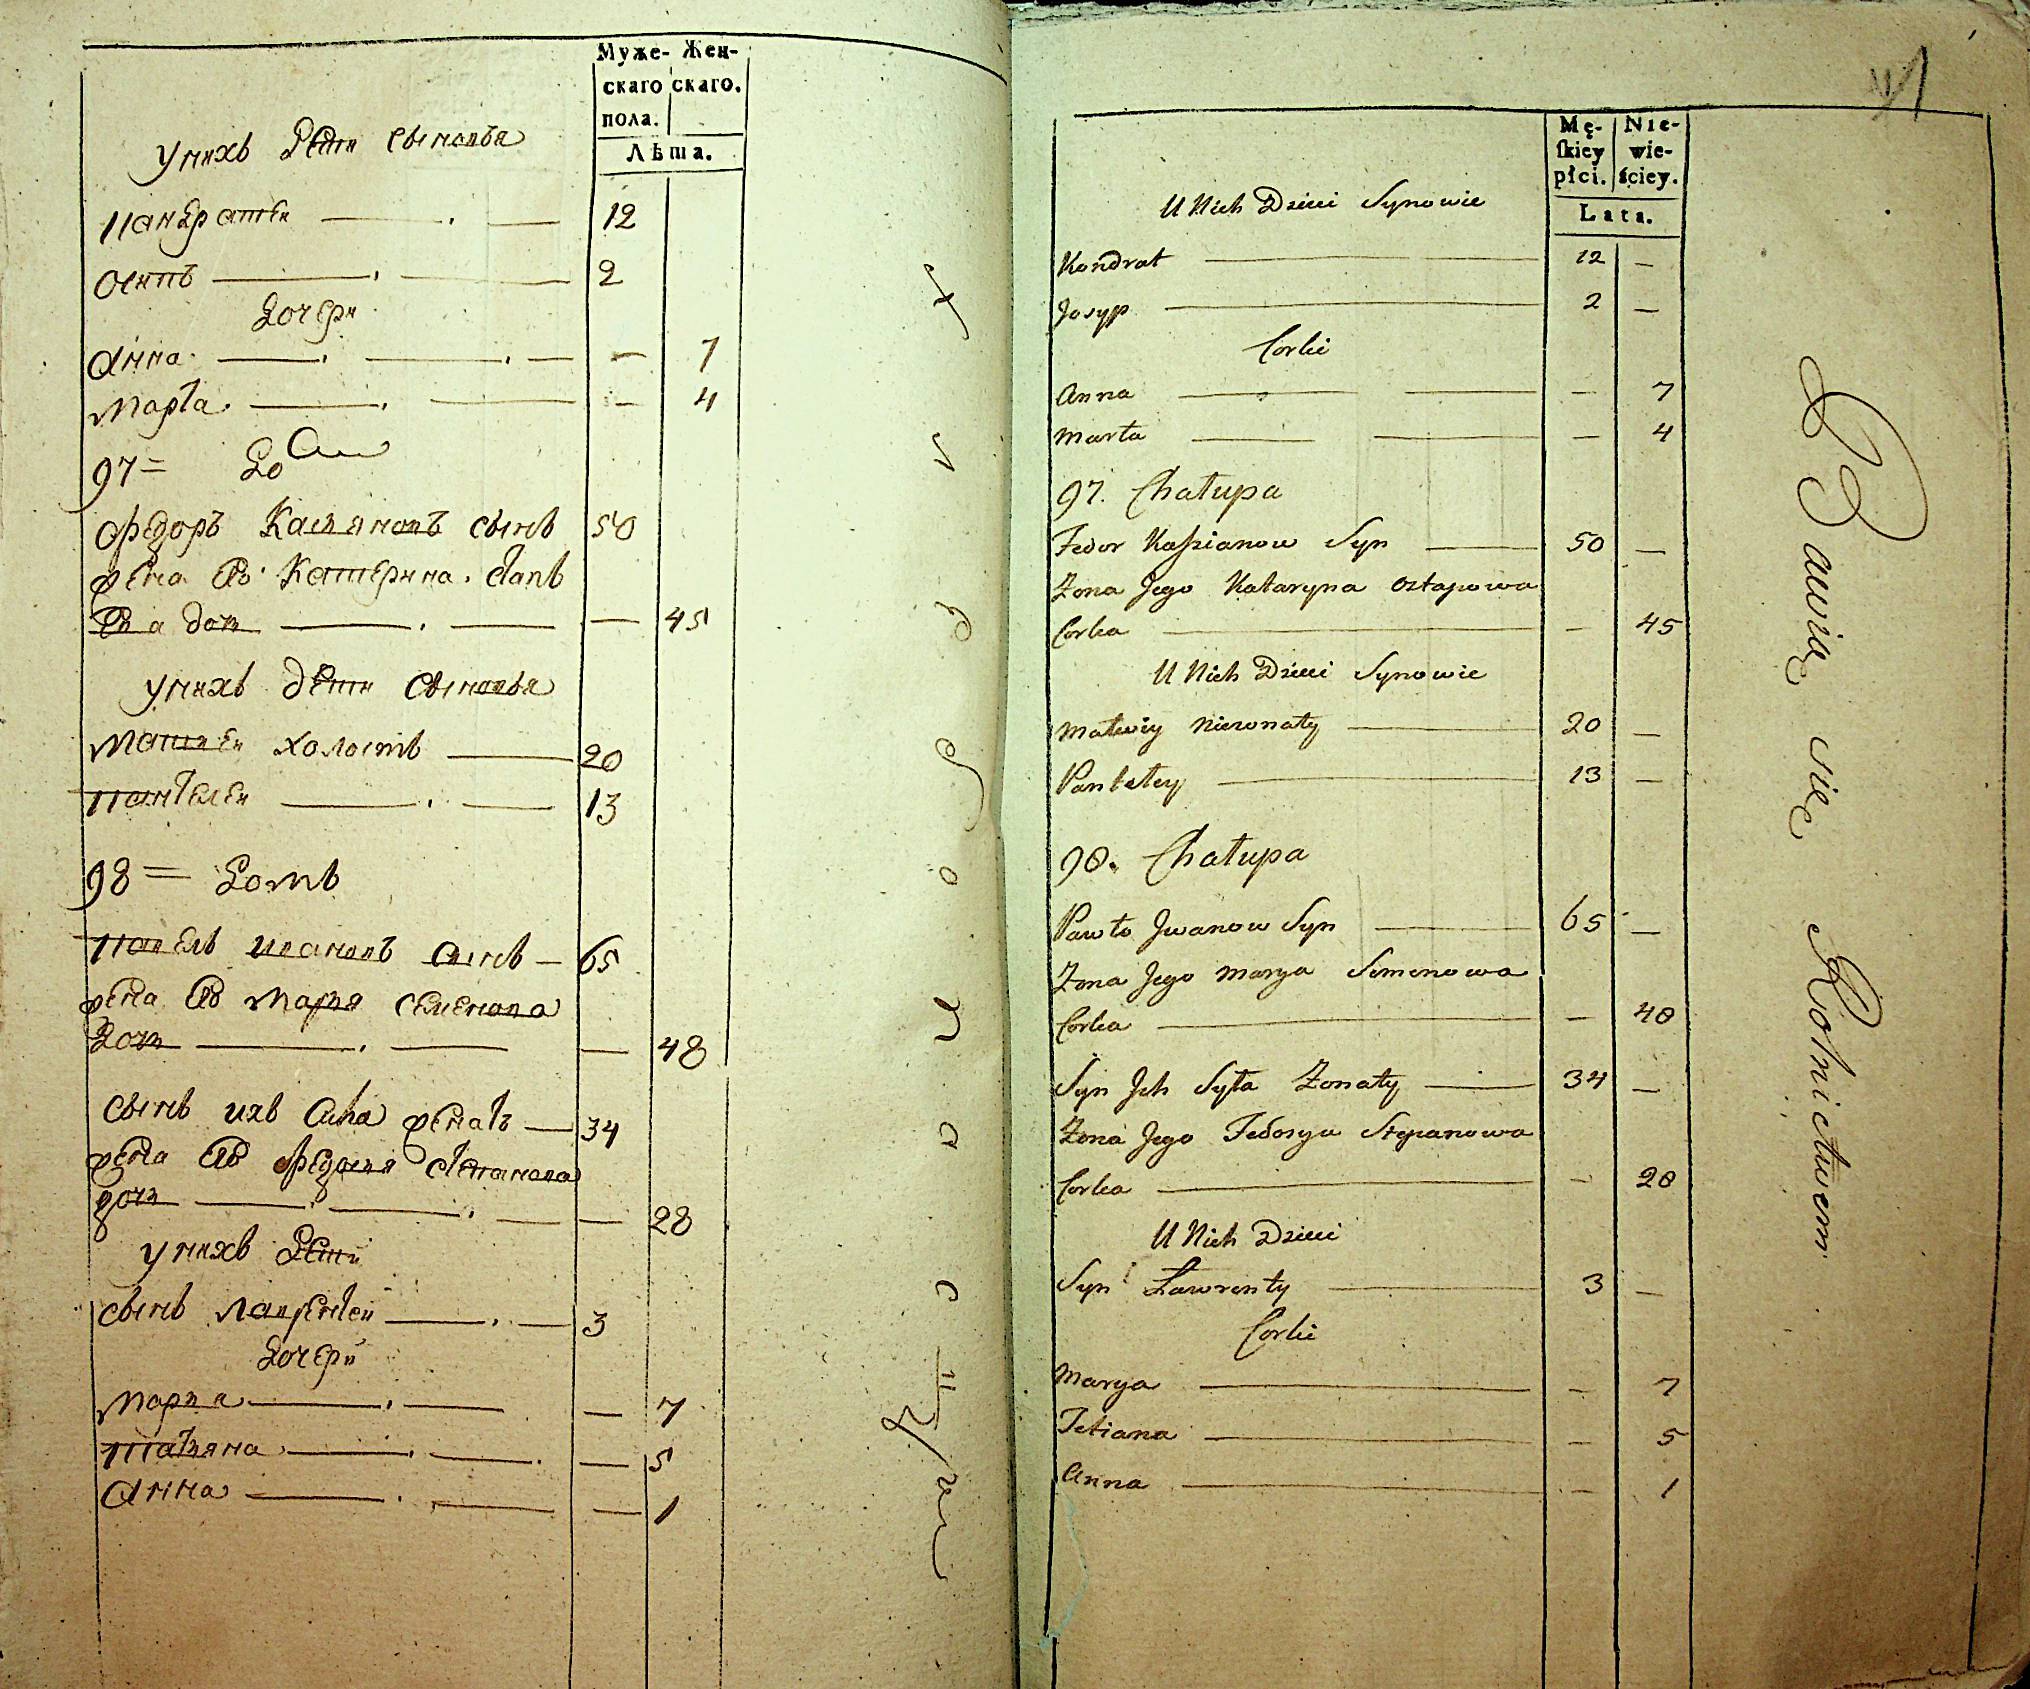 Муже- Жен-
скаго скаго.
пола.
Лѣта.
У нихъ дети сыновья
Панкратеи 12
осипъ 2
дочери
Анна — 7
марта — 4
97 = домъ
Федоръ Касьяновъ сынъ 50
жена ево Катерина Остапо
ва дочь — 45
У нихъ дети сыновья
матвеи холостъ 20
пантелеи 13
98 = домъ
павелъ ивановъ сынъ 65
жена ево марья семенова
дочь — 48
сынъ ихъ Сила женатъ 34
жена ево Федосья степанова
дочь — 28
у нихъ дети
сынъ лаврентеи 3
дочери
марья — 7
татьяна — 5
анна — 1
Mę- Nie-
skiey wie-
płci. ściey.
Lata.
U Nich Dzieci Synowie
Kondrat 12 —
Josyp 2 —
Corki
Anna — 7
Marta — 4
97. Chałupa
Fedor Kaszianow Syn 50 —
Zona Jego Kataryna Ostapowa
Corka — 45
U Nich Dzieci Synowie
Matwiy Niezonaty 20 —
Panteley 13 —
98. Chałupa
Pawło Jwanow Syn 65 —
Zona Jego Marya Semenowa
Corka — 48
Syn Jch Syła Zonaty 34 —
Zona Jego Fedosya Stepanowa
Corka — 28
U Nich Dzieci
Syn Ławrenty 3 —
Corki
Marya — 7
Tetiana — 5
Anna — 1
Bawią się Rolnictwem